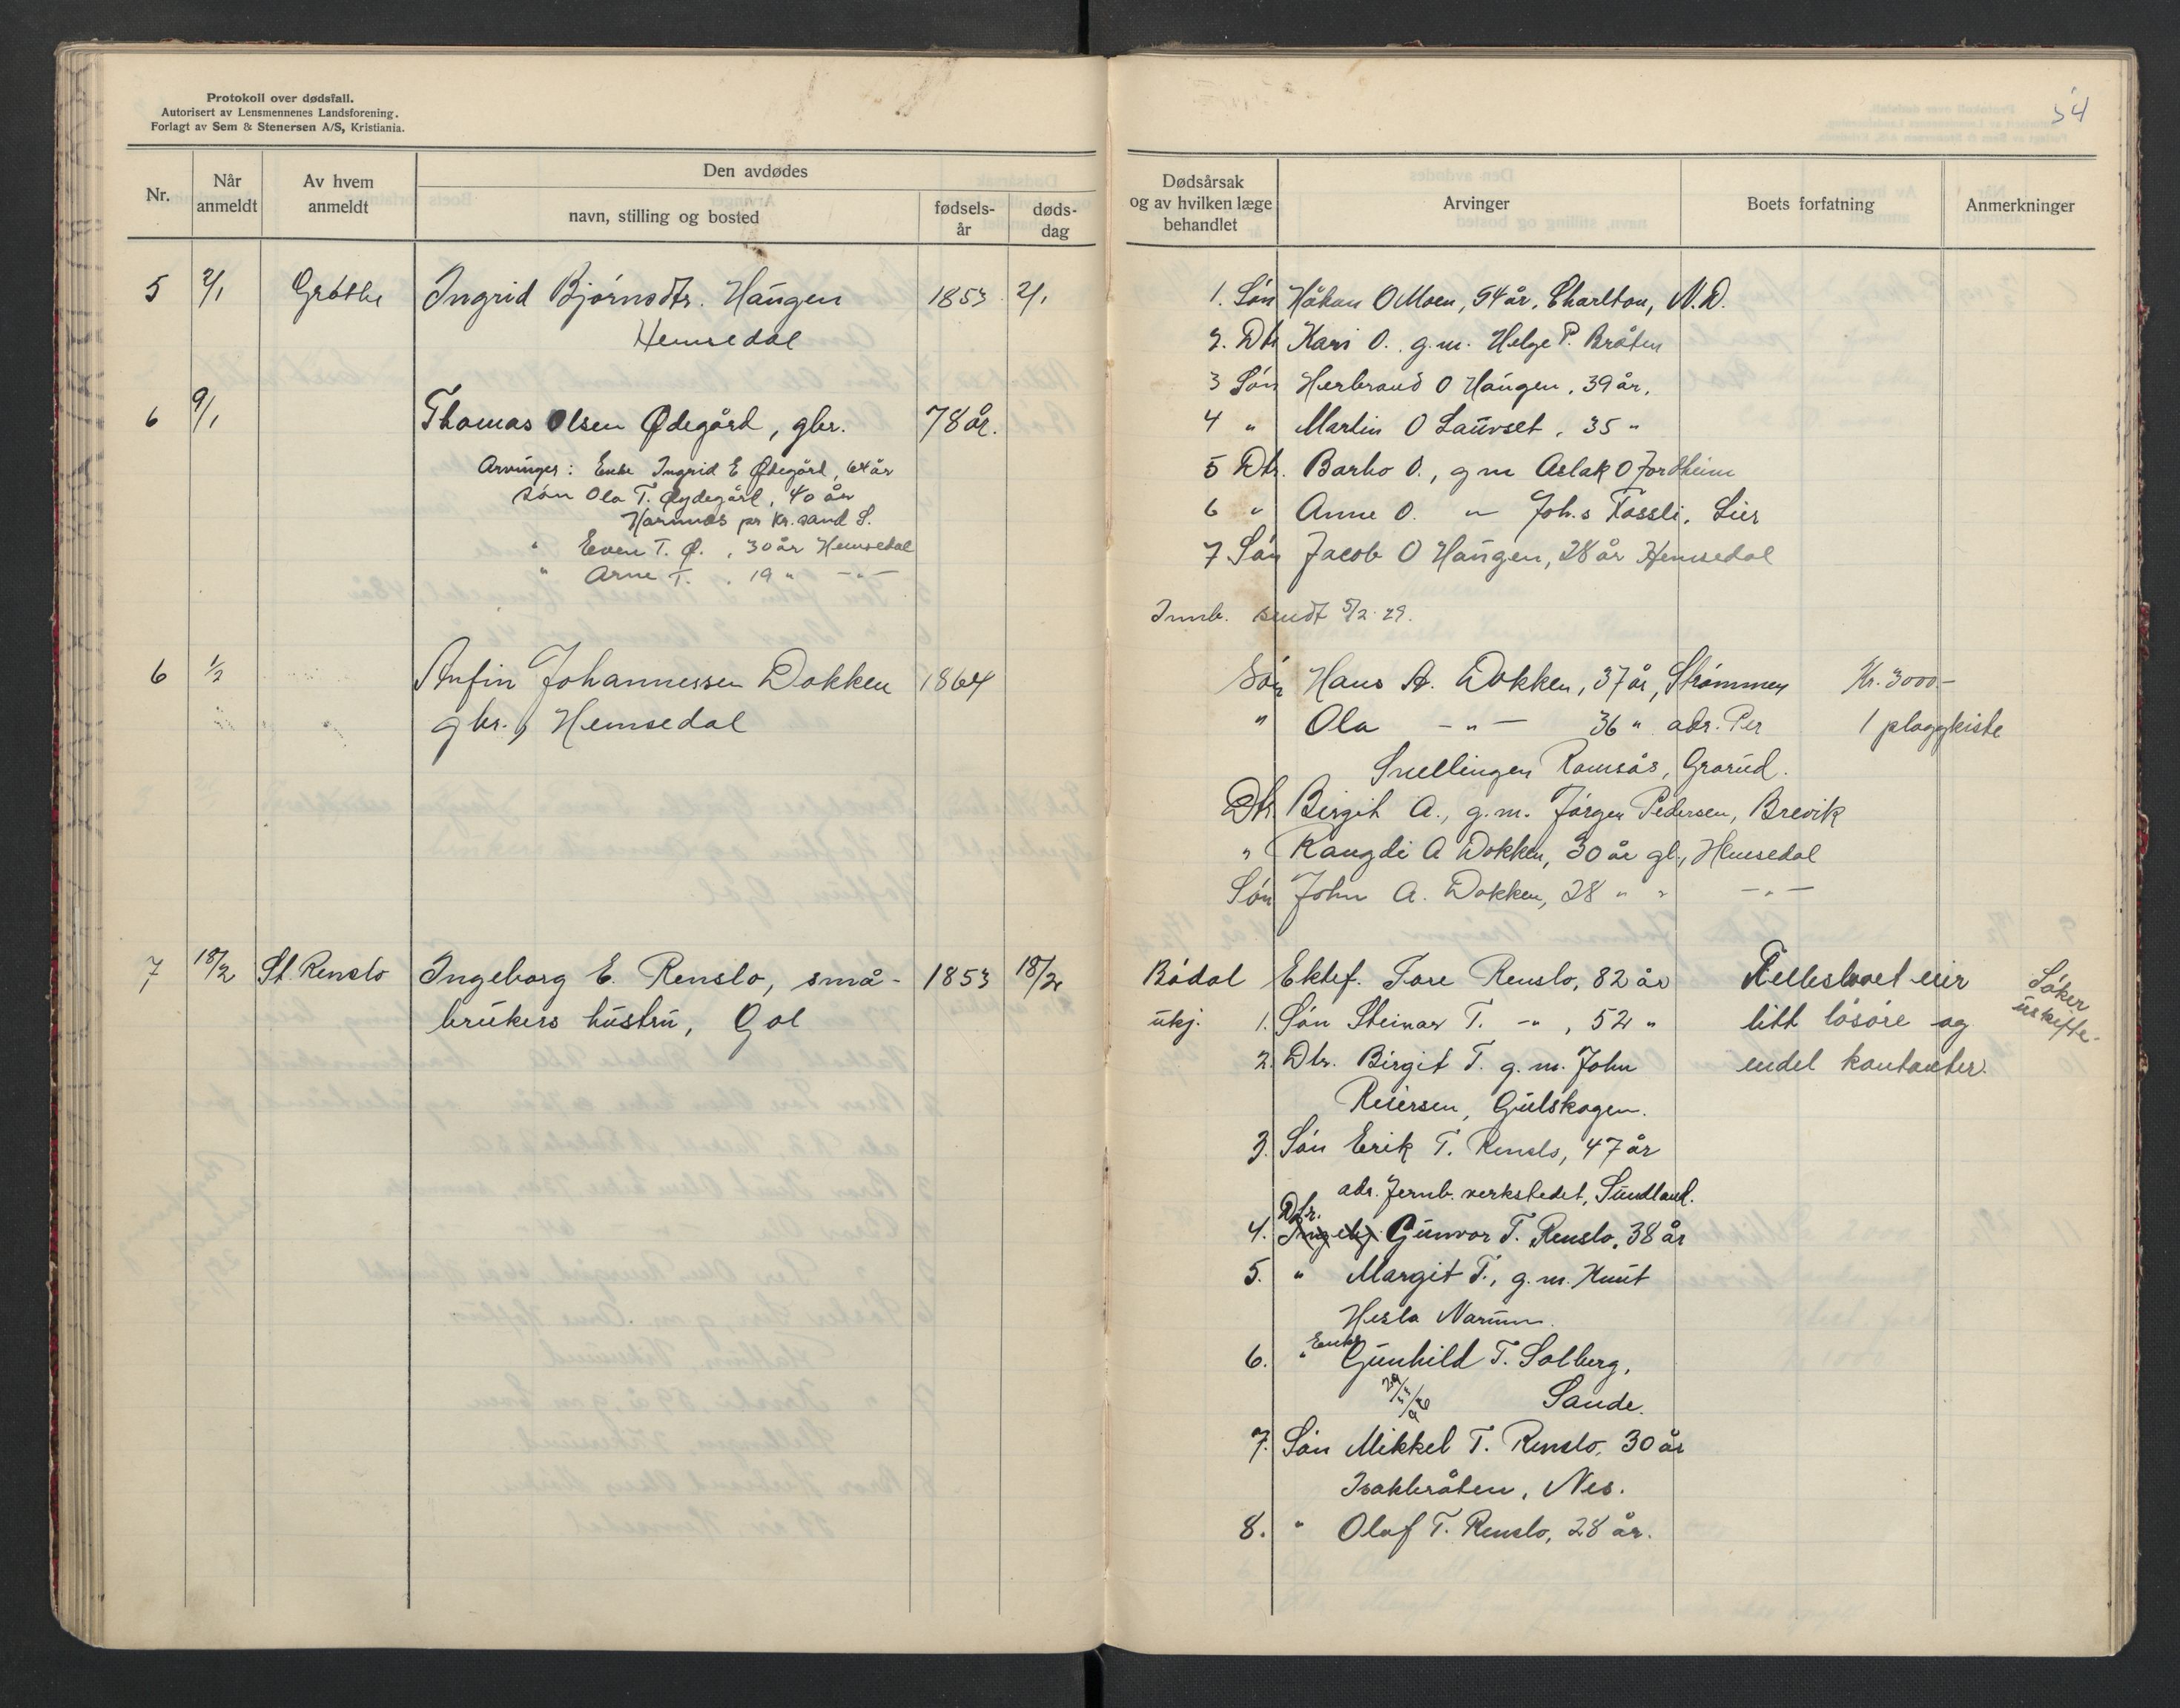 Protokoll over dødsfall.
Autorisert av Lensmennenes Landsforening.
Forlagt av Sem & Stenersen A/S, Kristiania.
Nr.
Når anmeldt
Av hvem anmeldt
Den avdødes
navn, stilling og bosted
fødsels-år
døds-dag
5 2/1 Grøthe Ingrid Bjørnsdtr. Haugen 1853 2/1
Hemsedal
6 9/1 Thomas Olsen Ødegård, gbr. 78 år.
Arvinger: Enke Ingrid E Ødegård, 64 år
søn Ola T. Øydegård, 40 år
pr Kr.sand S.
" Even T. Ø., 30 år Hemsedal
" Arne T. , 19 " -"-
6 1/2 Anfin Johannessen Dokken 1864
gbr., Hemsedal
7 18/2 St. Renslo Ingeborg E. Renslo, små- 1853 18/2
brukers hustru, Gol
54
Dødsårsak og av hvilken læge behandlet
Arvinger
Boets forfatning
Anmerkninger
1. Søn Håkan O Moen, 54 år, Charlton, N.D.
2. Dtr Kari O. g.m. Helge P. Bråten
3 Søn Herbrand O Haugen, 39 år.
4 " Martin O Lauvset, 35 "
5 Dtr. Barbo O., g m Aslak O Jordheim
6 " Anne O. " Joh.s Fossli, Lier
7 Søn Jacob O Haugen, 28 år Hemsedal
Innb. sendt 5/2 29.
Søn Hans A. Dokken, 37 år, Strømmen Kr. 3000.-
" Ola -"- 36 " adr. Per 1 plaggkiste
Snellingen Romsås, Grorud.
Dtr. Birgit A., g.m. Jørgen Pedersen, Brevik
" Rangdi A Dokken, 30 år gl., Hemsedal
Søn John A. Dokken, 28 " " -"-
Bødal Ektef. Tore Renslo, 82 år Fellesboet eier Søker
ukj. 1. Søn Steinar T. -" , 52 " litt løsøre og uskifte.
2. Dtr. Birgit T. g.m. John endel kontanter.
Reiersen, Gulskogen.
3. Søn Erik T. Renslo, 47 år
adr. Jernb. verkstedet, Sundland.
Dtr.
4. Gunvor T. Renslo, 38 år
5. " Margit T., g.m. Knut
Hesla Narum.
6. " Enke Gunhild T. Solberg,
Sande.
7. Søn Mikkel T. Renslo, 30 år
Isakbråten, Nes.
8. " Olaf T. Renslo, 28 år.